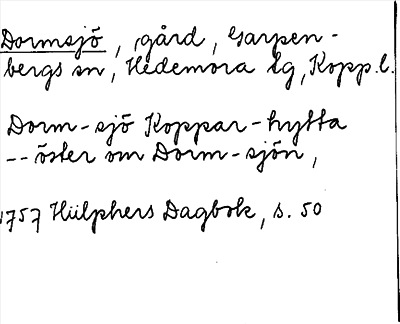 Dormsjö, gård, Garpen-
bergs sn, Hedemora tg, Kopp.l.
Dorm-sjö Koppar-hytta
-- öster om Dorm-sjön,
1757 Hülphers Dagbok, s. 50